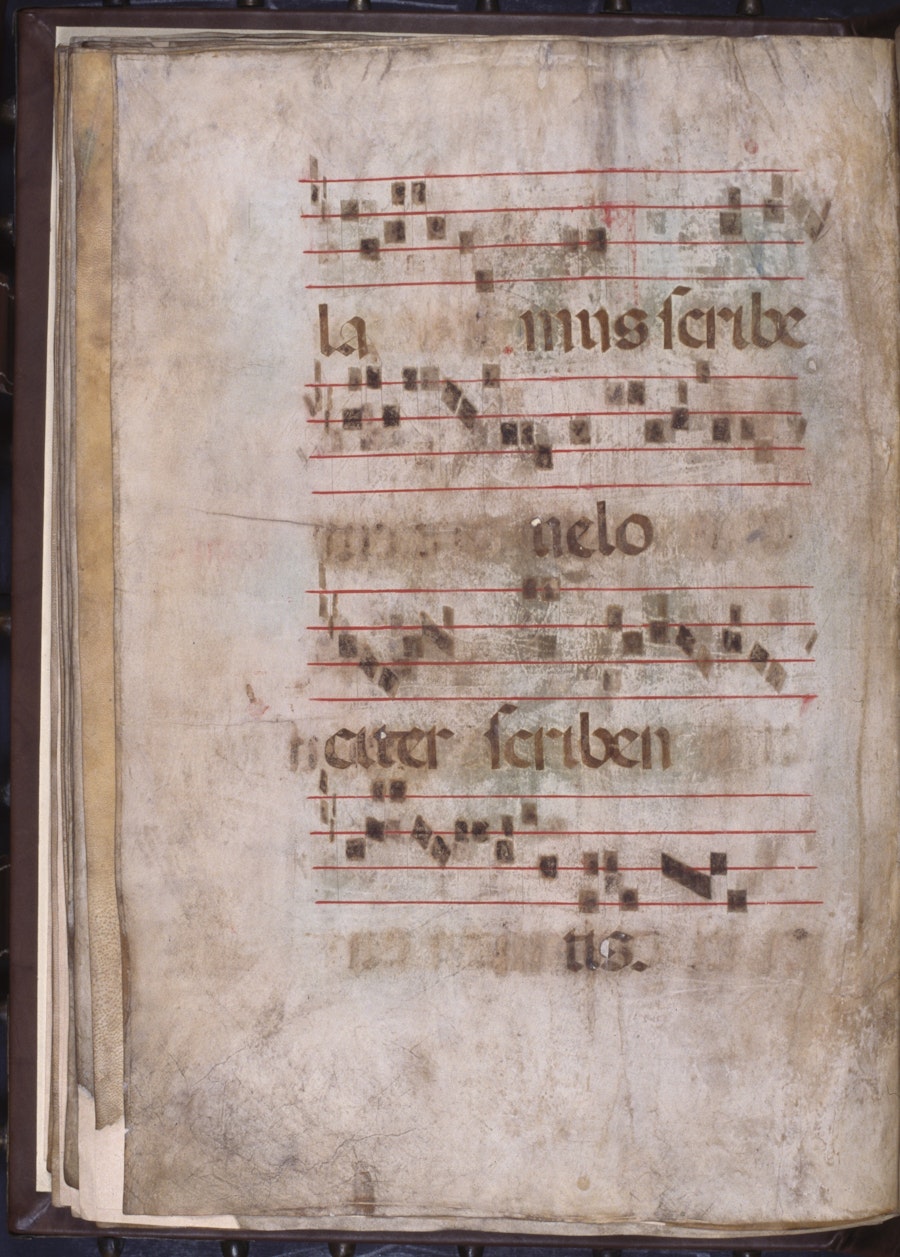 la mus scribe
uelo
citer scriben
tis.